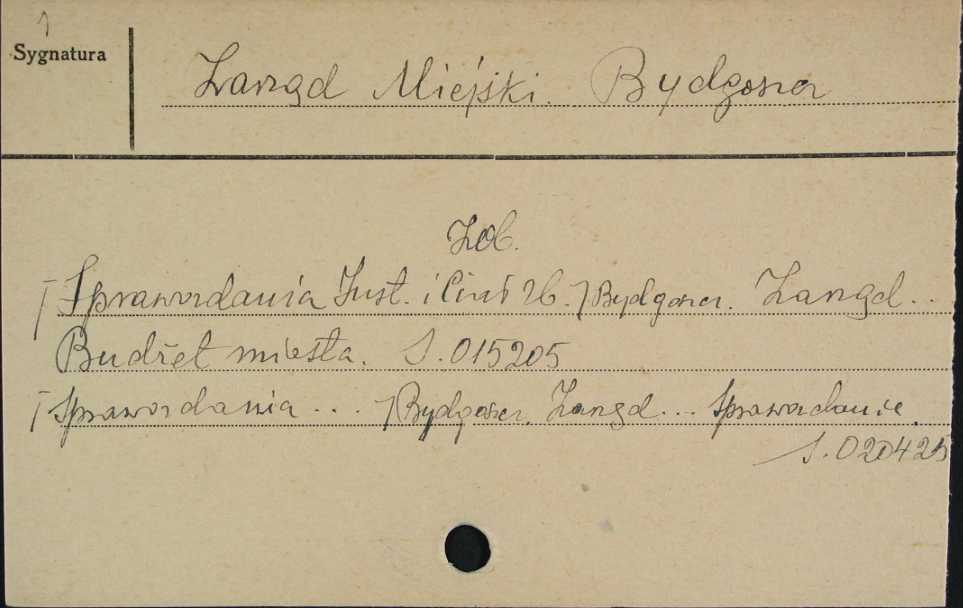 Sygnatura
Zarząd Miejski. Bydgoszcz
Zob.
[Sprawozdania Inst. i Ciał Zb.] Bydgoszcz. Zarząd..
Budżet miasta. S.015205
[Sprawozdania...] Bydgoszcz. Zarząd... Sprawozdanie.
S.020425